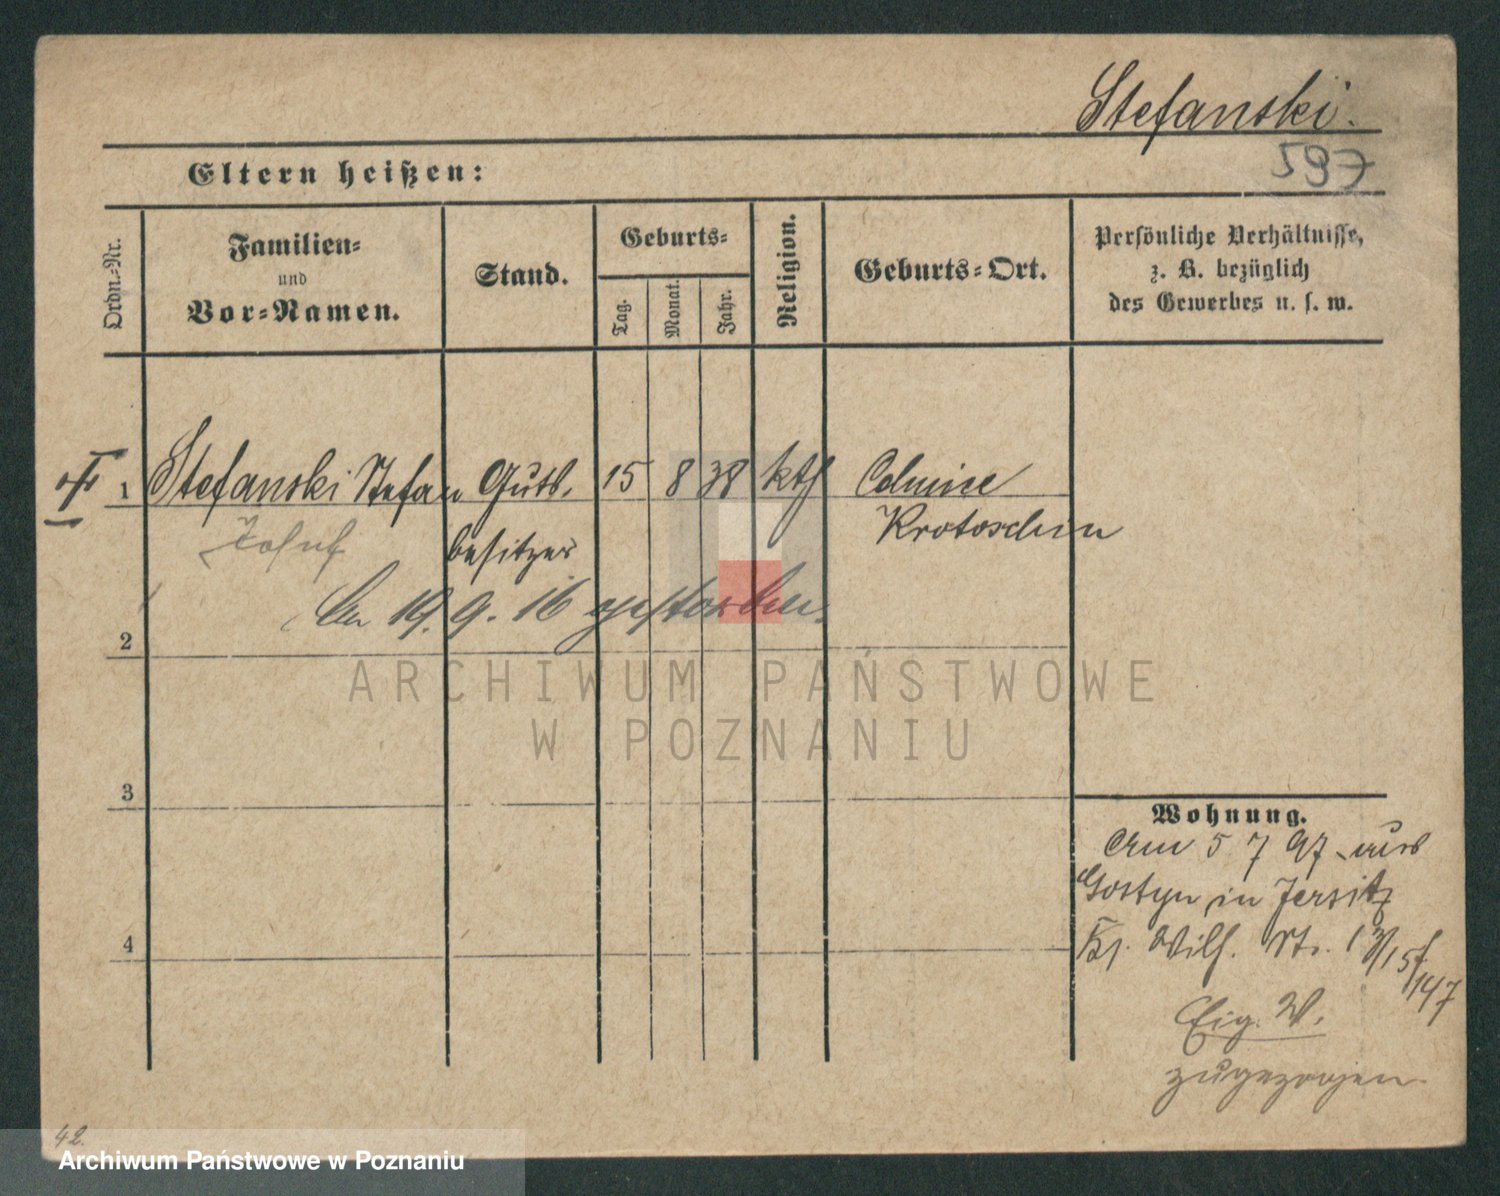 Stefanski.
597
Eltern heißen:
Ordn.-Nr.
Familien-
und
Vor-Namen.
Stand.
Geburts-
Tag.
Monat.
Jahr.
Religion.
Geburts-Ort.
Persönliche Verhältnisse,
z. B. bezüglich
des Gewerbes u. s. w.
1 Stefanski Stefan Guts- 15 8 38 kth
Krotoschin
Josef besitzer
19. 9. 16 gestorben.
2
ARCHIWUM PAŃSTWOWE
W POZNANIU
3
4
Wohnung.
Am 5 7 97 aus
Gostyn in Jersitz
Wilh. Str.
Eig. W.
zugezogen.
42.
Archiwum Państwowe w Poznaniu